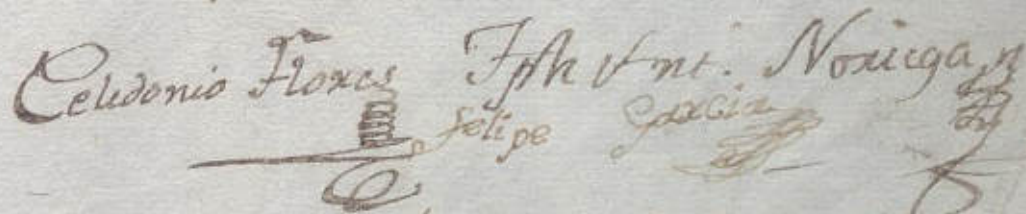 Celedonio Flores Jph Ant. Noriega
Felipe Garcia